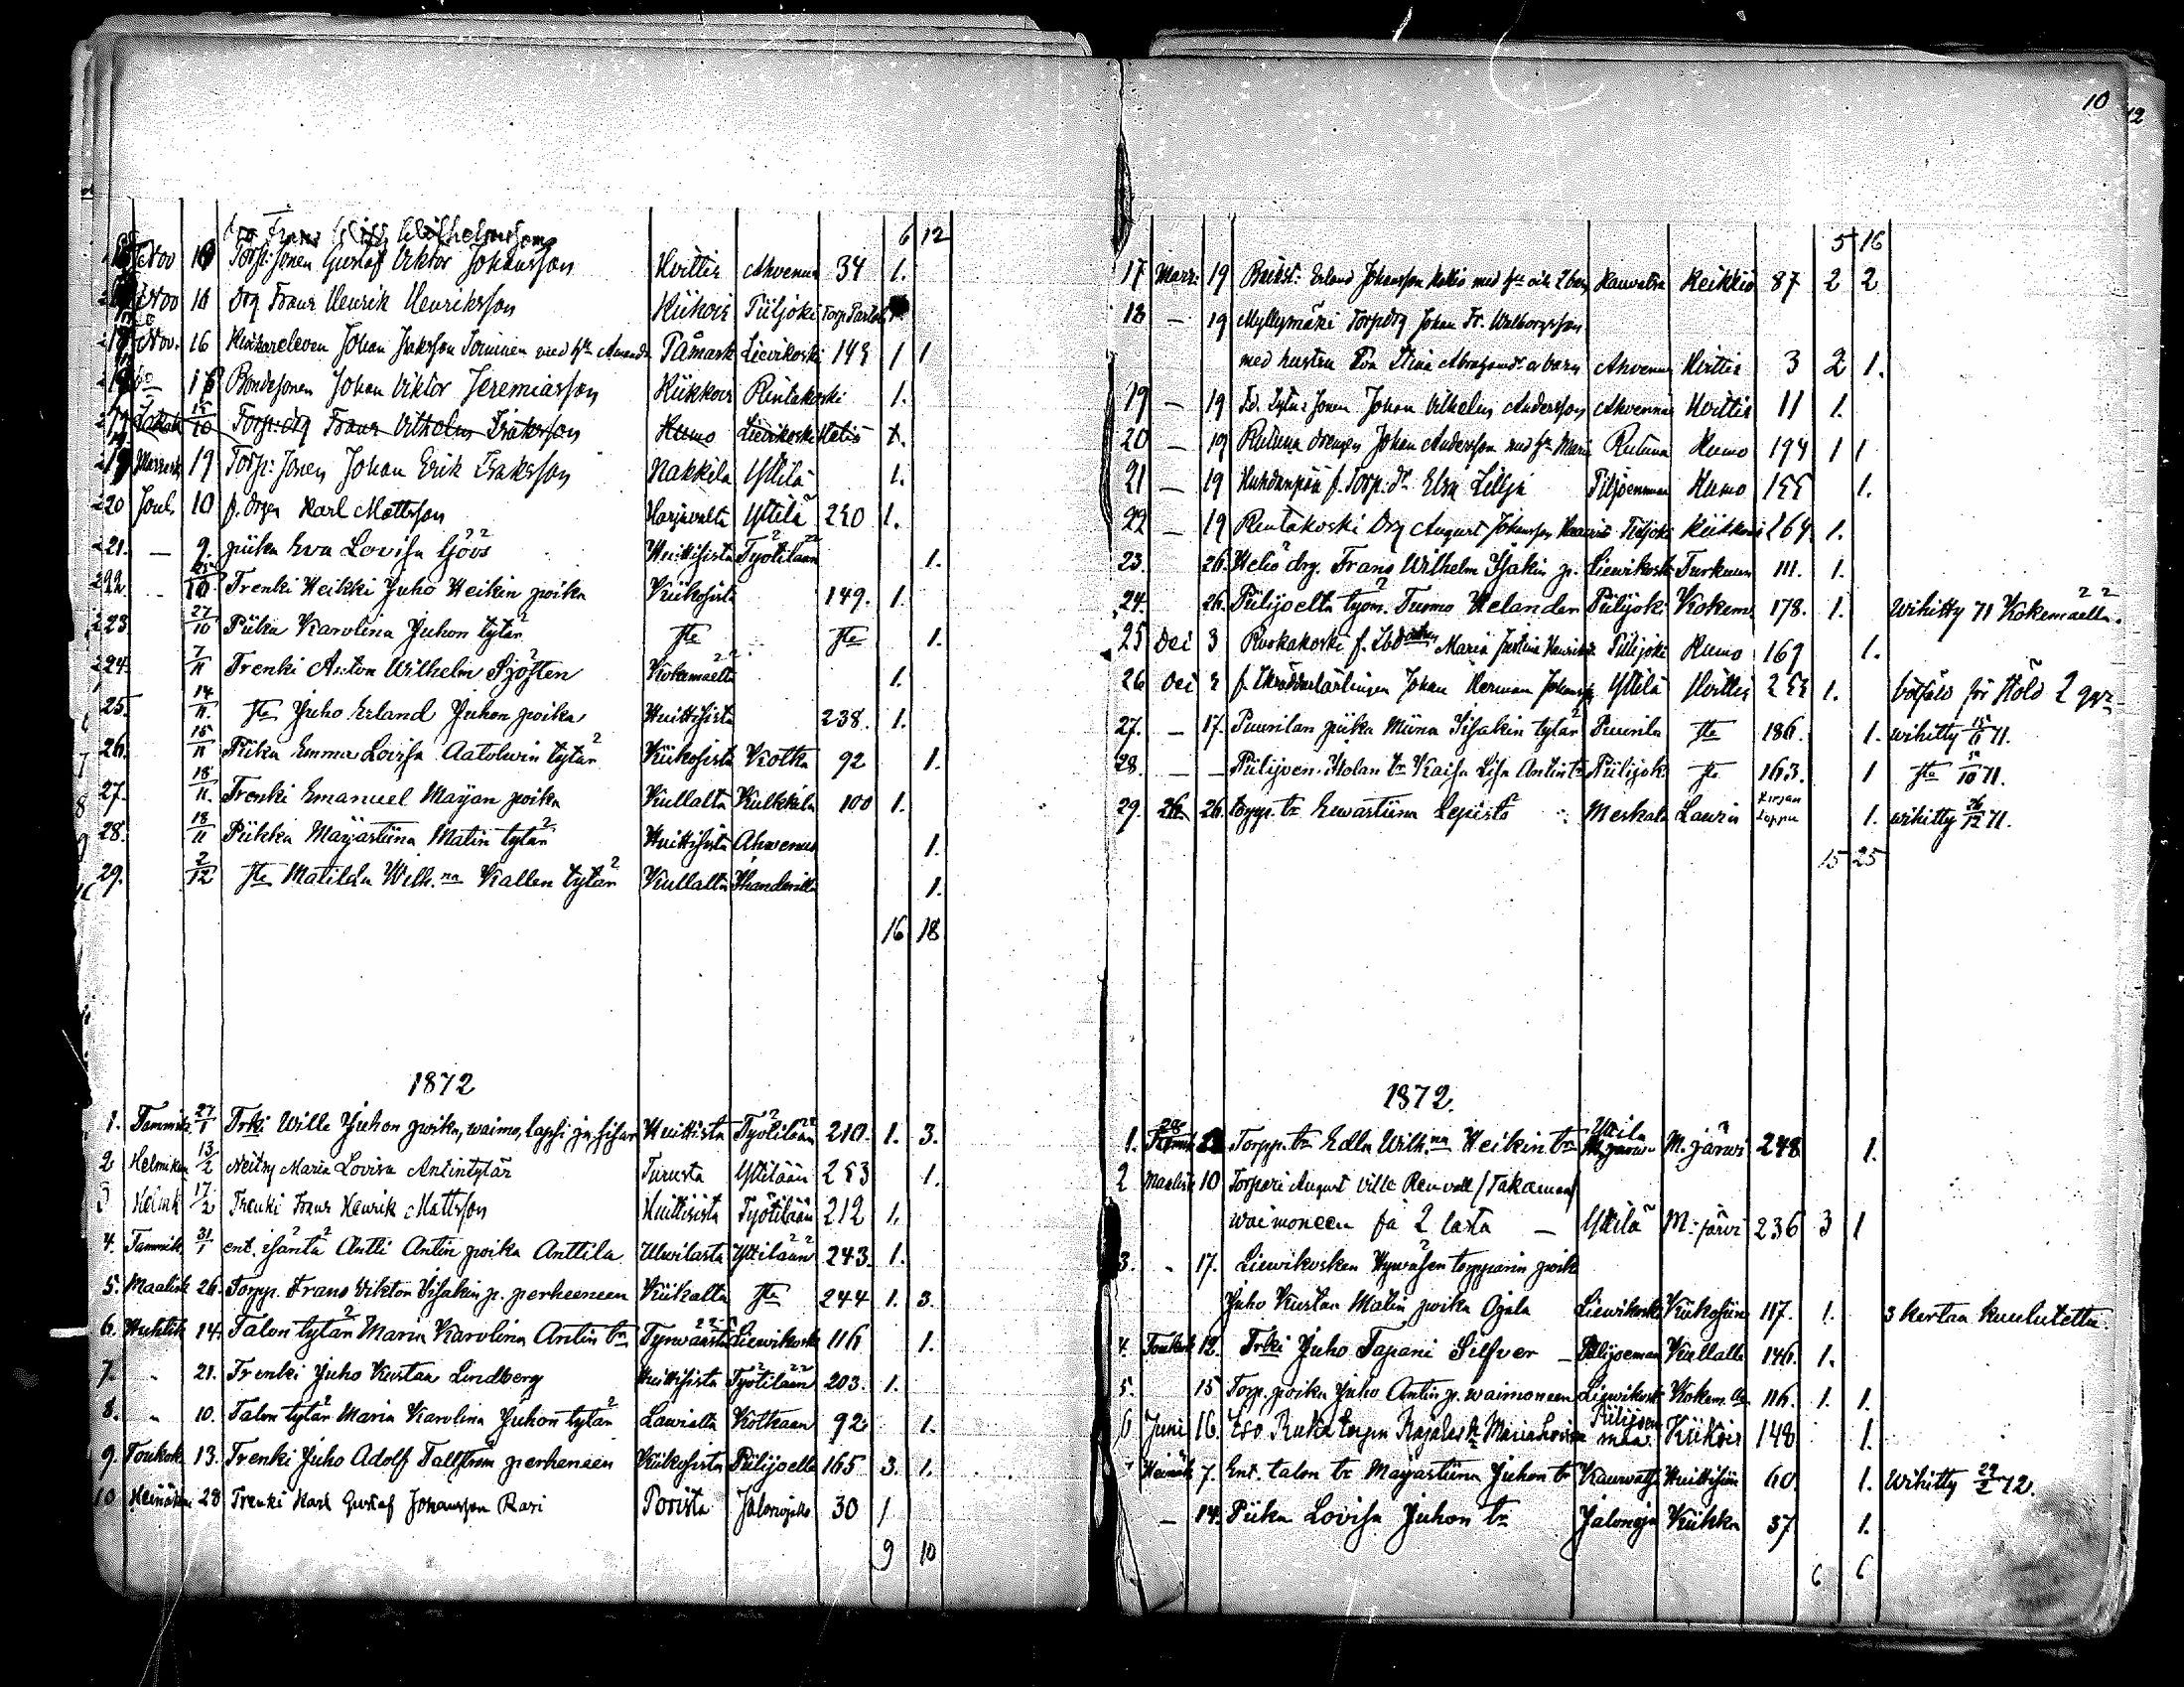 6 12
Nov Torp: sonen Gustaf Viktor Johansson Hvittis Ahvenus 34 1.
Nov 16 Drg Frans Henrik Henriksson Kiikois Piiljoki
Nov. 16 Johan Isaksson Toivinen med hu Amanda Påmark Lievikoski 143 1 1
Bondesonen Johan Viktor Jeremiasson Kiikkois Rintakoski 1.
15/10 Torp: drg Frans Vilhelm Isaksson Kumo Lievikoski Heliö 1.
19 Marrask 19 Torp: sonen Johan Erik Isaksson Nakkila Yttilä 1.
20 Joul. 10 f. drgen Karl Mattsson Harjavalta Yttilä 250 1.
21. — 9. piika Eva Lovisa Sjöös Huittisista Työtilään 1.
22. Trenki Heikki Juho Heikin poika Kiikosista 149. 1.
23 27/10 Piika Karolina Juhon tytär ste ste 1.
24. 7/11 Trenki Anton Wilhelm Sjösten Kokemäeltä 1.
25. 14/11. ste Juho Erland Juhon poika Huittisista 238. 1.
26. 15/11 Piika Emma Lovisa Aatolwin tytär Kiikosista Kotka 92 1.
27. 18/11. Trenki Emanuel Maijan poika Kullalta Kulkkila 100 1.
28. 18/11 Piikka Maijastiina Matin tytär Huittisista Ahwenus 1.
29. 2/12 ste Matilda Wilh.na Kallen tytär Kullalta 1.
16 18
1872
1. Tammik. 27/1 Trki Wille Juhon poika, waimo, lapsi ja sisar Huittista Työtilään 210. 1. 3.
2 Helmikuu 13/2 Neitsy Maria Lovisa Antintytär Turusta Yttilään 253 1.
3 Helmk 17/2 Trenki Frans Henrik Mattsson Huittisista Työtilään 212 1.
4. Tammik. 31/1 ent. isäntä Antti Antin poika Anttila Ulwilasta Yttilään 243. 1.
5. Maalisk 26. Torpp. Frans Viktor Iisakin p. perheeneen Kiikalta ste 244 1. 3.
6. Huhtik 14. Talon tytär Maria Karolina Antin tr Tyrwäästä Liewikoski 116 1.
7. " 21. Trenki Juho Kustaa Lindberg Huittisista Työtilään 203. 1.
8. " 10. Talon tytär Maria Karolina Juhon tytär Lawialta Kotkaan 92 1.
9. Toukok 13. Trenki Juho Adolf Tallström perheneen Kiikosista Piilijoelle 165 3. 1.
10 Heinäkuu 28 Trenki Karl Gustaf Johansson Rasi Porista Jalonojalle 30 1
9 10
10
12
5 16
17 Marr. 19 Erland Johansson med hu och 2 barn Kauvatsa Keikkiö 87 2 2
18 — 19 Myllymäki Torpdrg Johan Fr. Walborgsson
med hustru Eva Stina Abrahamsdr o barn Ahvenus Hvittis 3 2 1.
19 — 19 sonen Johan Vilhelm Andersson Ahvenus Hvittis 11 1.
20 — 19 Rutuna drengen Johan Andersson med hu Maria Rutuna Kumo 194 1 1
21 — 19 Huhdanpää f. Torp: dr Elsa Lillja Piiljoenmaa Kumo 155 1.
22 — 19 Rintakoski Drg August Johansson Piiljoki Kiikkois 164 1.
23. 26. Heliö drg. Frans Wilhelm Iisakin p. Liewikoski Turkuun 111. 1.
24. 26. Piilijoelta työm. Tuomo Helander Piilijoki Kokem. 178. 1. Wihitty 71 Kokemäellä.
25 Dei 3 Ruokakoski f. Maria Justina Piilijoki Kumo 169 1.
26 Dei f. Skräddarlärlingen Johan Herman Johansson Yttilä Hvittis 1.
27. — 17. Puurilan piika Miina Iisakin tytär Puurila ste 186. 1. wihitty 15/11 71.
28. — — Piilijoen Uolan tr Kaisa Lisa Antin tr Piilijoki ste 163. 1 ste 71.
29. 26 26. torpp. tr Ewastiina Lepistö Meskala Lawia Kirjan loppu 1. wihitty 26/12 71.
15 25
1872.
1. 28 Torpp. tr Edla Wilh.na Heikin tr Yttilä M.järwi 248 1.
2 Maalisk 10 Torpari August Ville Renvall (Takamaa)
waimoneen ja 2 lasta — Yttilä M:järvi 236 3 1
3. " 17. Liewikosken Hywösen torpparin poik
Juho Kustaa Matin poika Ojala Liewikoski Kiikosiin 117. 1. 3 kertaa kuulutettu.
4. Toukok 12. Trki Juho Tapani Silfver — Piilijoenmaa Kullalle 146. 1.
5. 15 Torp. poika Juho Antin p. waimoneen Liewikoski Kokem. 116. 1. 1.
6 Juni 16. Maria Lovisa Piilijoenmaa Kiikois 148 1.
Heinäk 7. Ent. talon tr Maijastiina Juhon tr Kauwatsa Huittisiin 60. 1. Wihitty 29/2 72.
— 14. Piika Lovisa Juhon tr Jalonoja Kiikka 37 1.
6 6